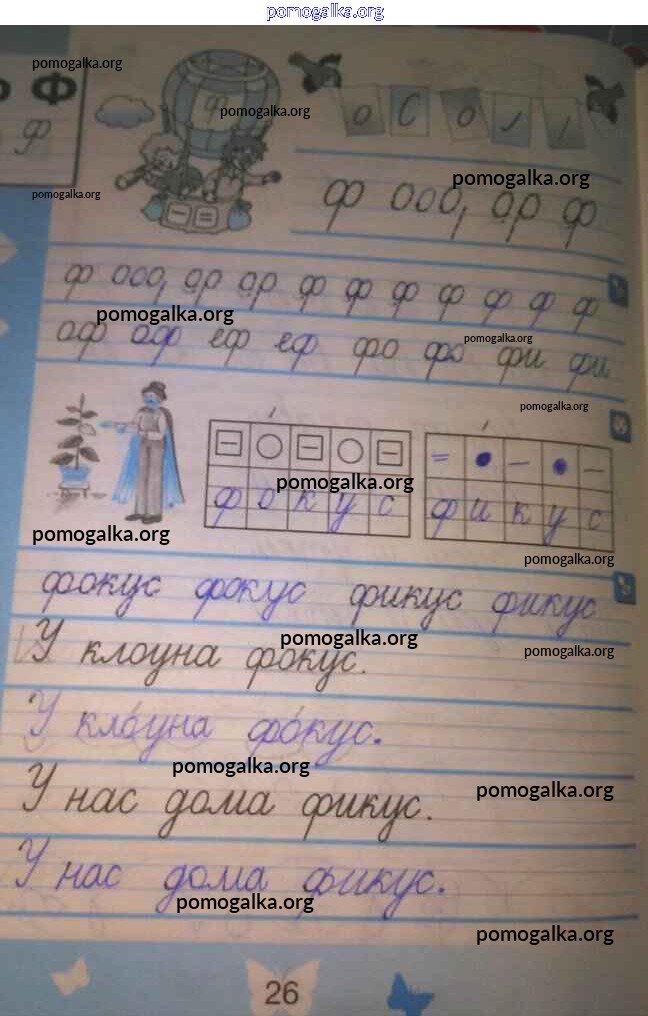 pomogalka.org
pomogalka.org
Ф
ф
pomogalka.org
pomogalka.org
pomogalka.org
ф ооо, ор ф
ф ооо, ор ор ф ф ф ф ф ф ф
pomogalka.org
аф аф еф еф фо фо фи фи
pomogalka.org
pomogalka.org
pomogalka.org
ф о к у с
ф и к у с
pomogalka.org
pomogalka.org
фокус фокус фикус фикус
pomogalka.org
pomogalka.org
У клоуна фокус.
У кло́уна фо́кус.
pomogalka.org
pomogalka.org
У нас дома фикус.
У нас дома фикус.
pomogalka.org
pomogalka.org
26